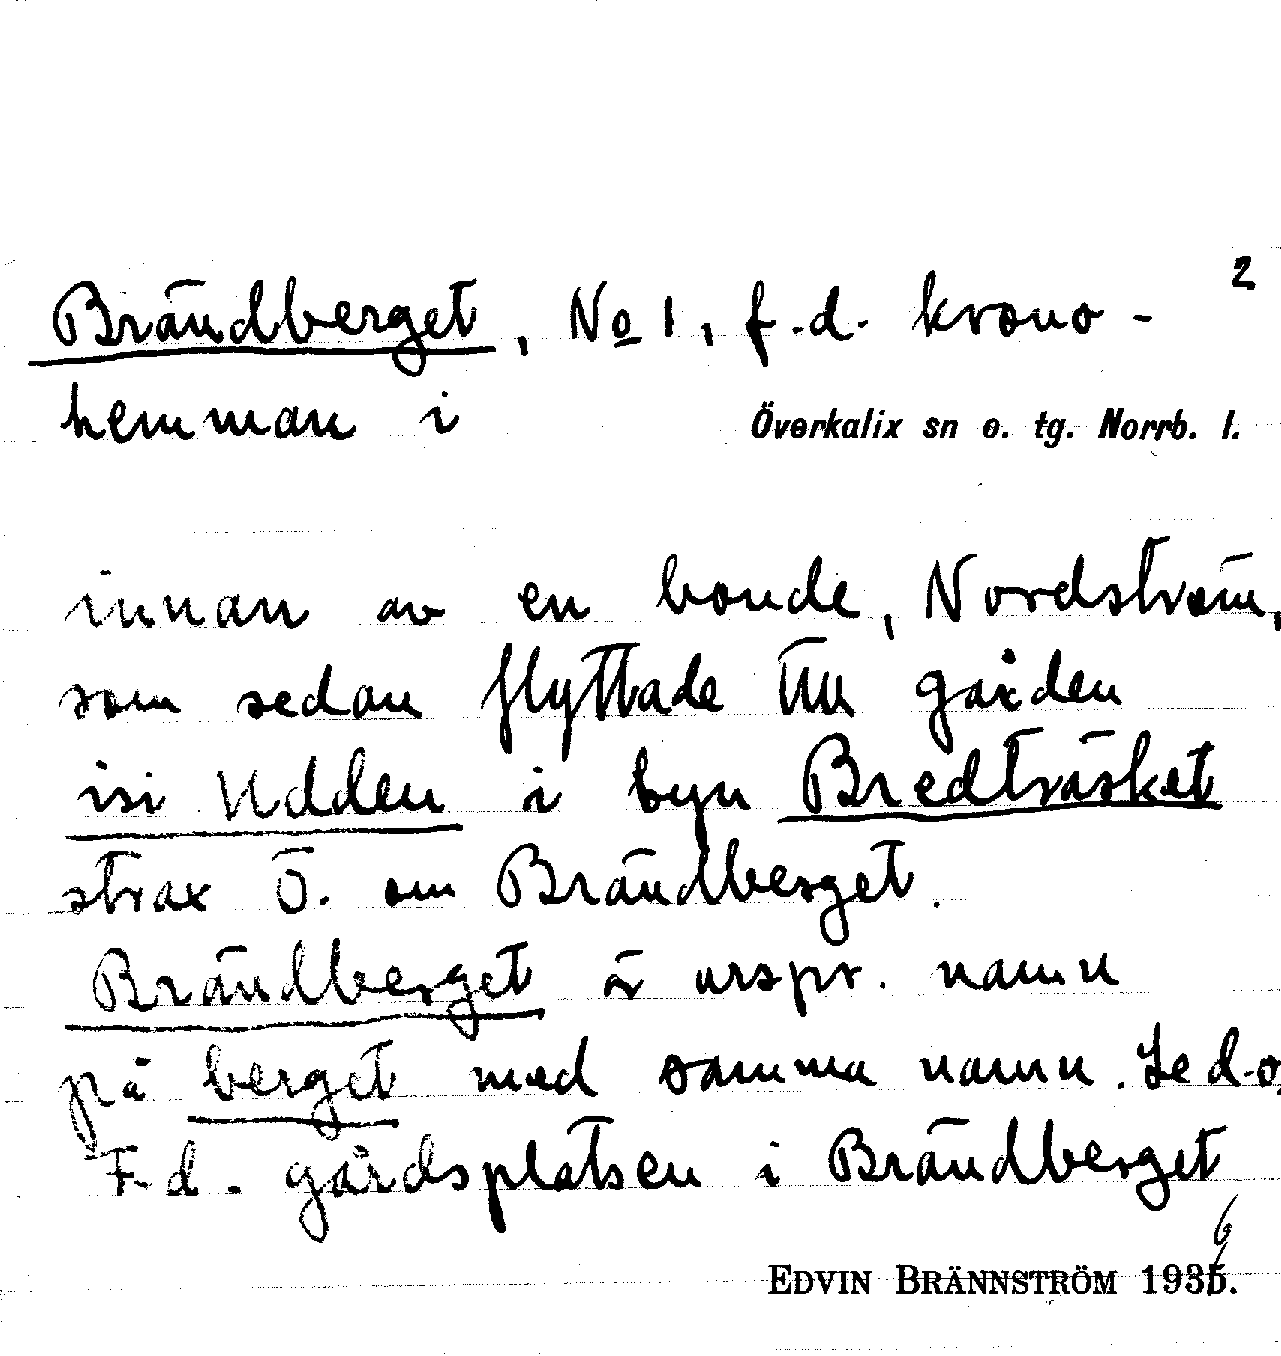 2
Brändberget, No 1, f.d. krono-
hemman i Överkalix sn o. tg. Norrb. l.
innan av en bonde, Nordström,
som sedan flyttade till gården
isi Udden i byn Bredträsket
strax Ö. om Brändberget.
Brändberget är urspr. namn
på berget med samma namn. Se d.o.
F.d. gårdsplatsen i Brändberget
EDVIN BRÄNNSTRÖM 1936.